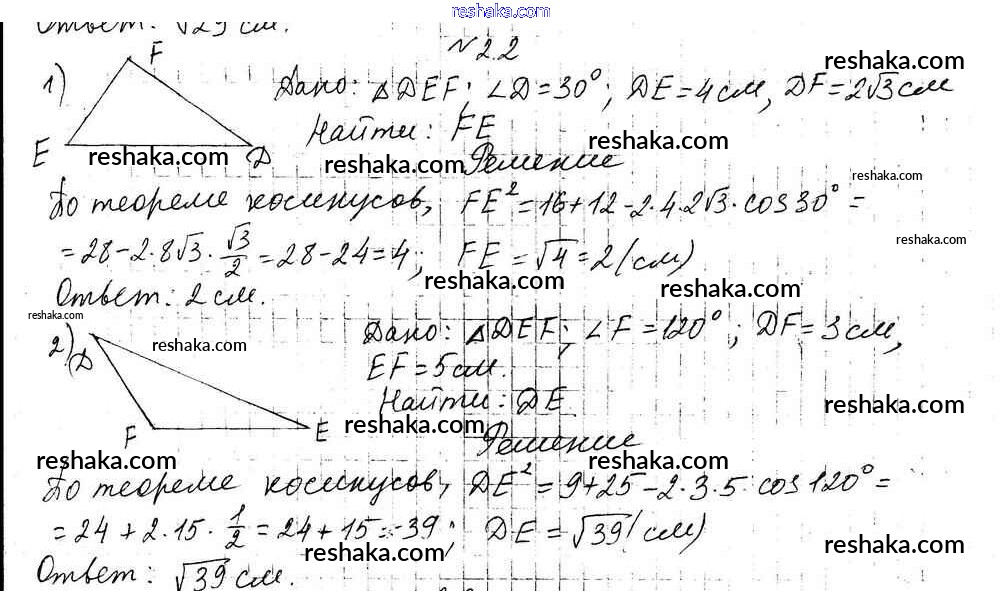 reshaka.com
Ответ: √29 см.
№ 2.2
reshaka.com
1) F Дано: △DEF; ∠D=30°; DE=4см, DF=2√3см
Найти: FE
reshaka.com
E reshaka.com D reshaka.com Решение
reshaka.com
По теореме косинусов, FE²=16+12-2·4·2√3·cos30°=
=28-2·8√3·√3/2=28-24=4; FE=√4=2(см)
reshaka.com
reshaka.com reshaka.com
Ответ: 2см.
reshaka.com
2) D reshaka.com Дано: △DEF; ∠F=120°; DF=3см,
EF=5см.
Найти: DE reshaka.com
F E reshaka.com Решение
reshaka.com reshaka.com
По теореме косинусов, DE²=9+25-2·3·5·cos120°=
reshaka.com
=24+2·15·1/2=24+15=39; DE=√39(см)
reshaka.com reshaka.com
Ответ: √39 см.